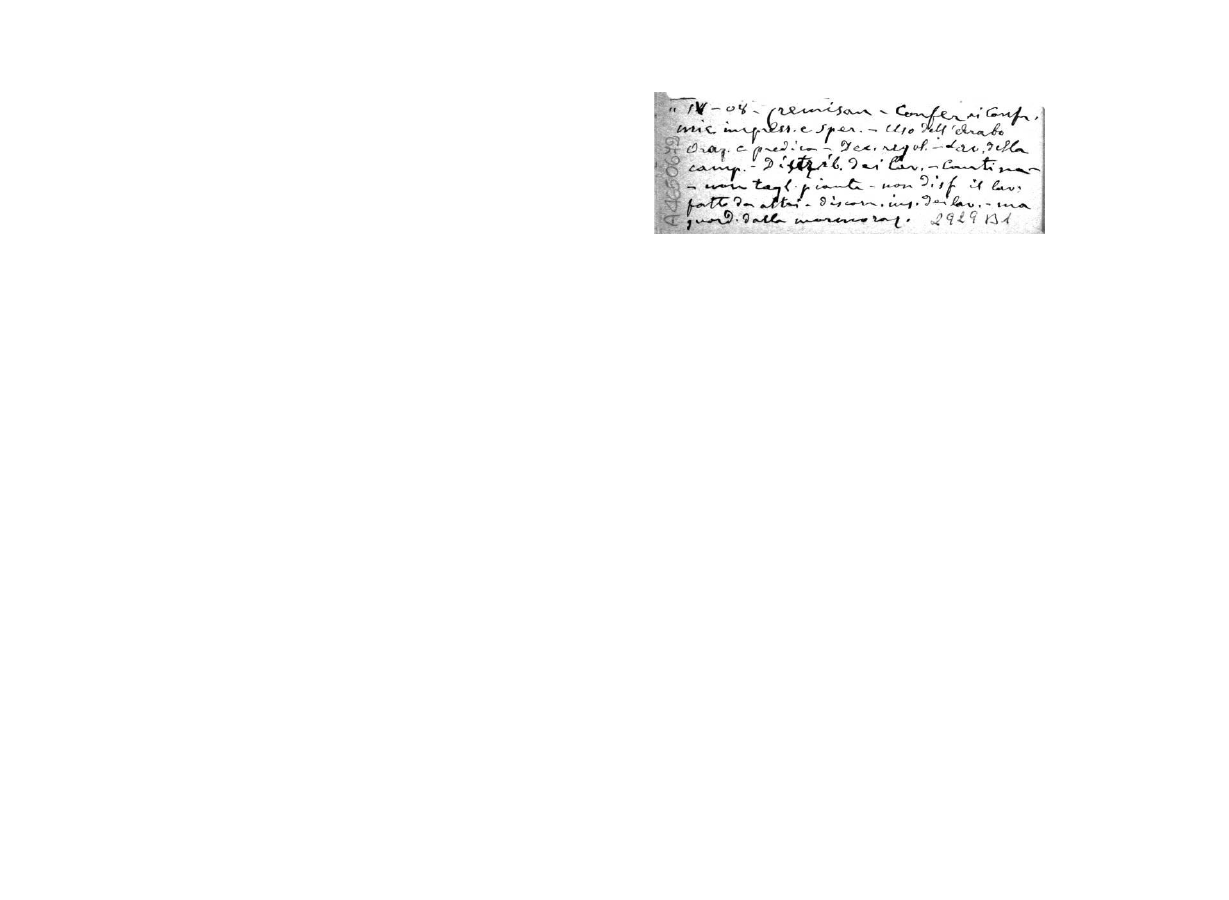 " IV - 08 - Cremisan - Confer ai Confr.
mie impress. e sper. - Uso dell'Arabo
Oraz. e predica - Dec. regol. - Lav. della
camp. - Distrib. dei lav. - Cantina -
- non tagl. piante - non disf il lav.
fatto da altri - discorr. ins. dei lav. - ma
guard. dalla mormoraz. 2929 B1
A4650679